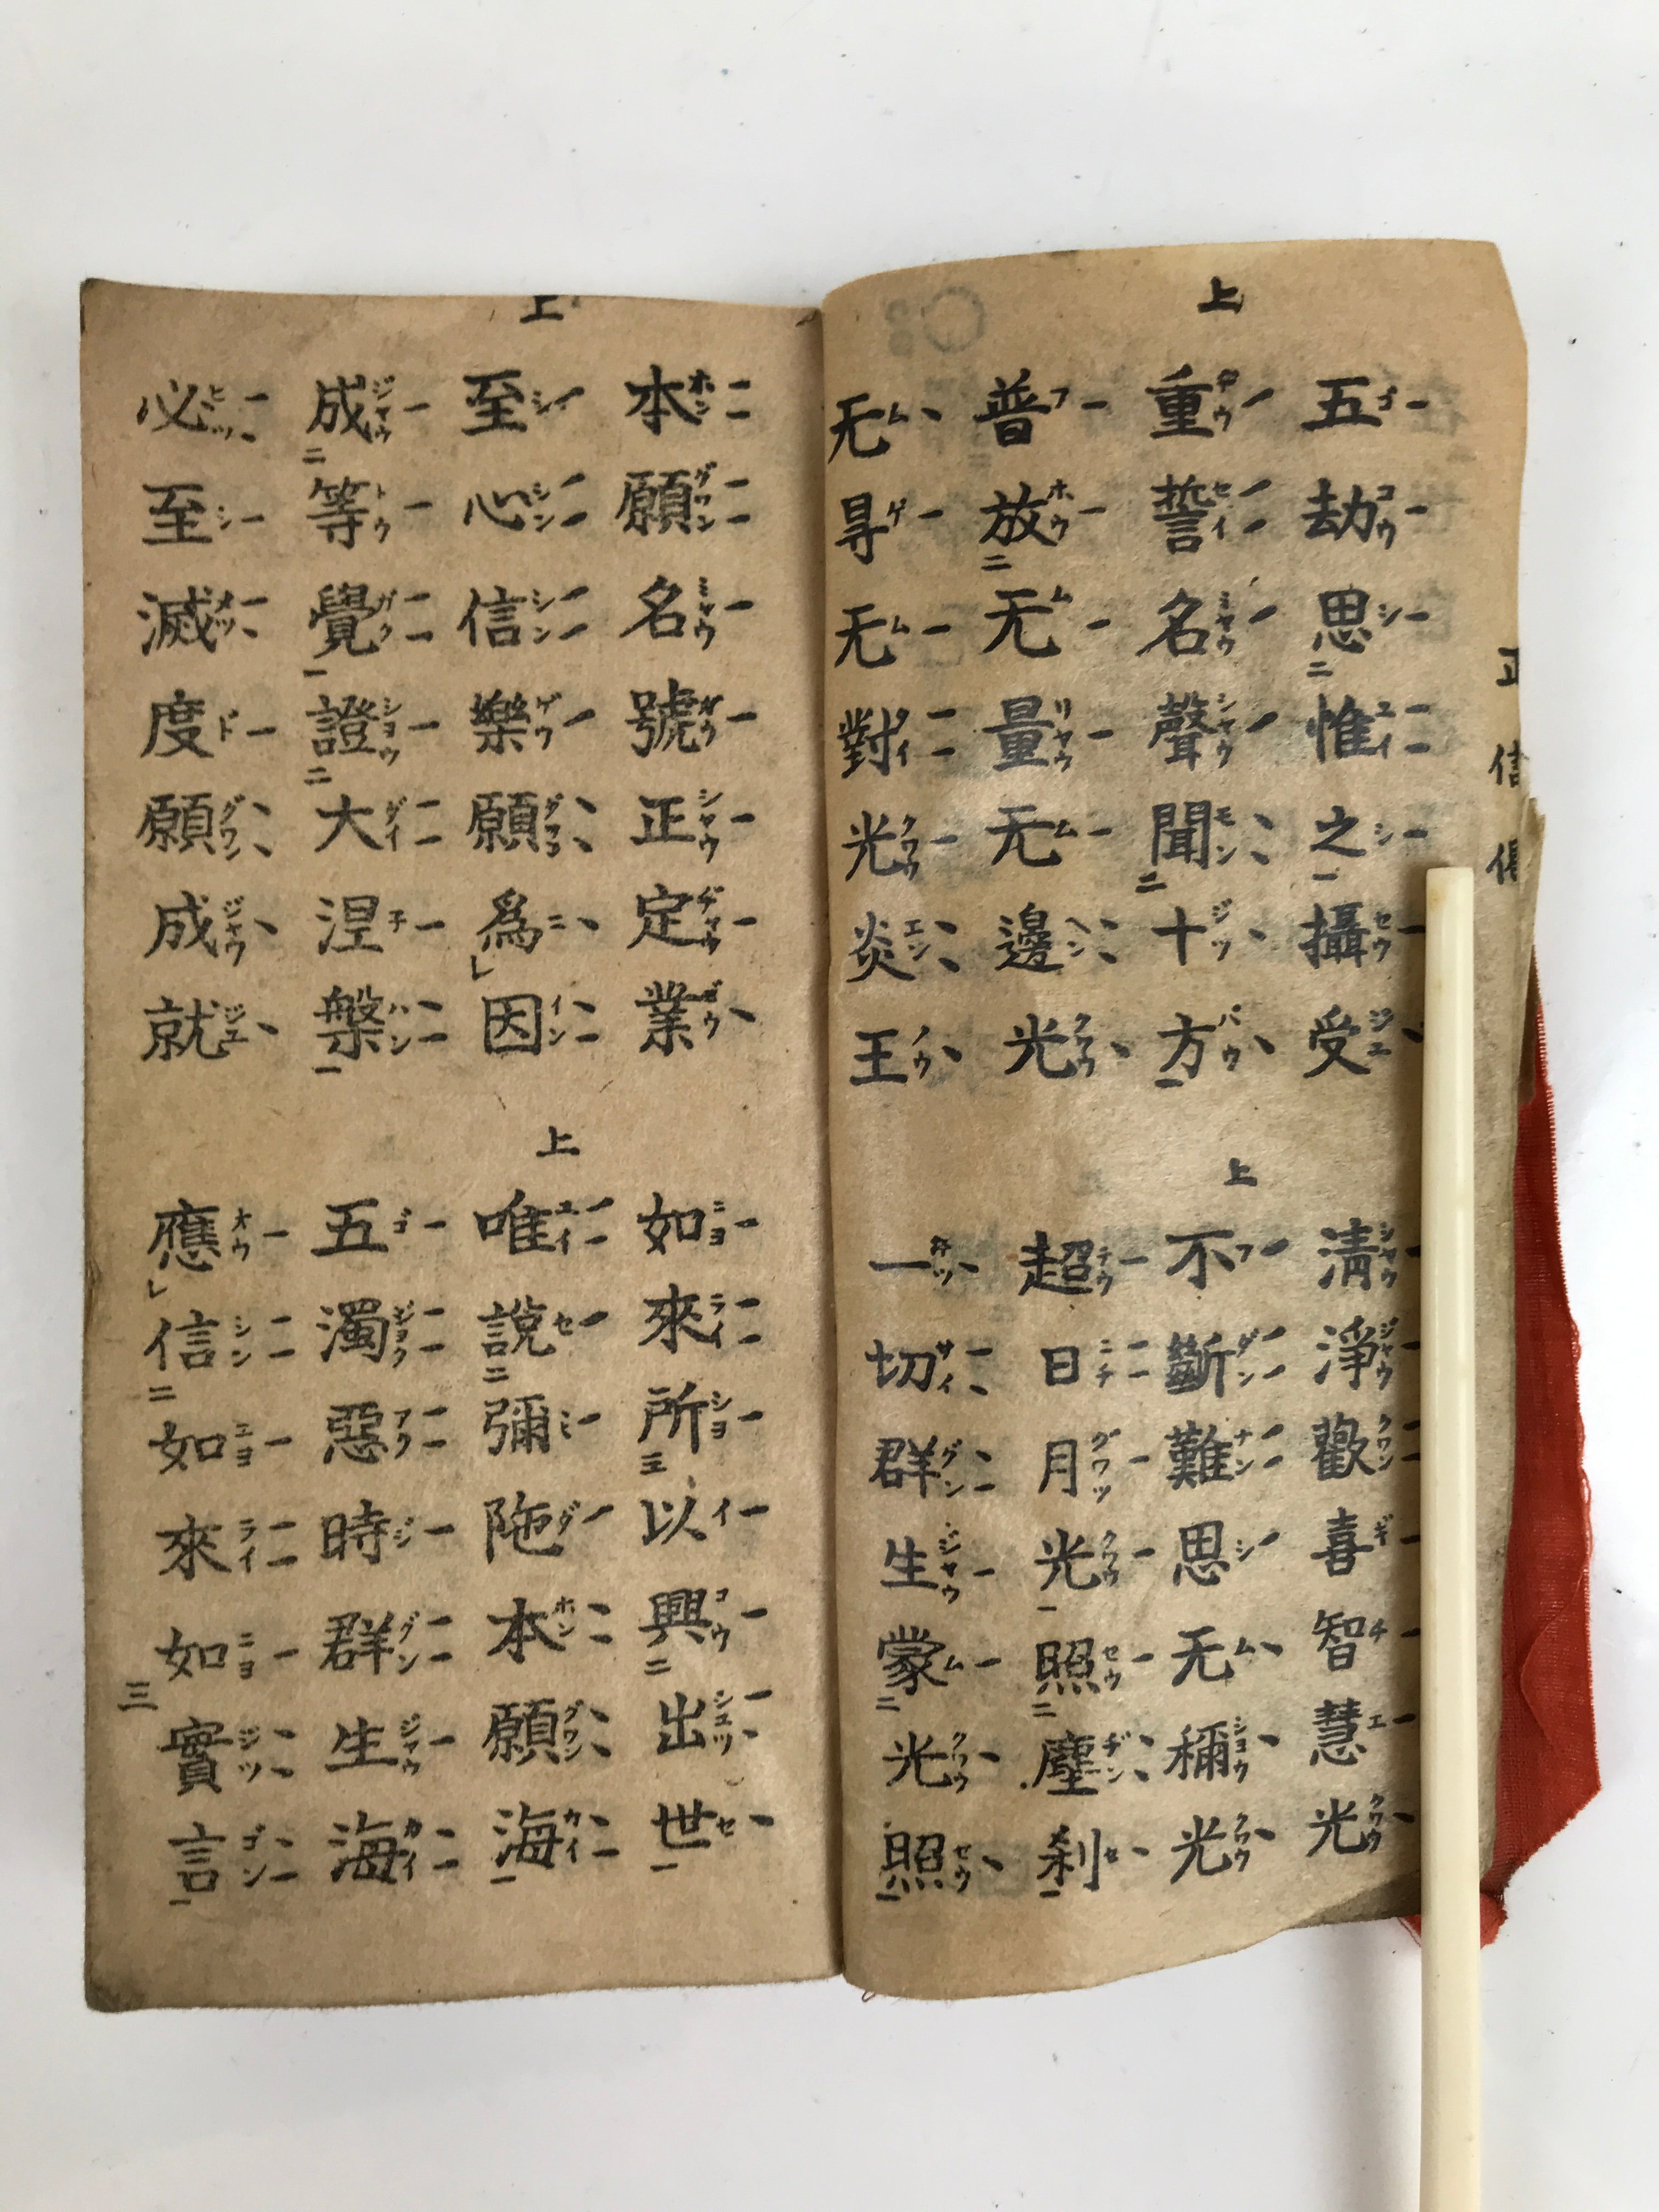 正信
上
五劫思惟之攝受
重誓名聲聞十方
普放无量无邊光
无㝵无對光炎王
上
淸淨歡喜智慧光
不斷難思无稱光
超日月光照塵刹
一切群生蒙光照
上
本願名號正定業
至心信樂願爲因
成等覺證大涅槃
必至滅度願成就
上
如來所以興出世
唯說彌陁本願海
五濁惡時群生海
應信如來如實言
三